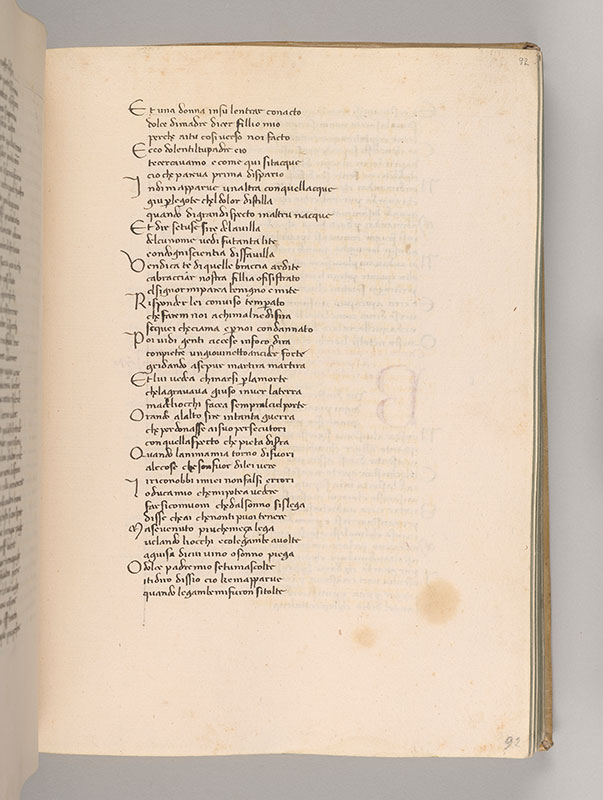 92
Et una donna insu lentrar conacto
dolce dimadre dicer fillio mio
perche aitu cosi verso noi facto
Ecco dolenti ltupadre eio
tecercavamo e come qui sitacque
cio che pareva prima dispario
Indi mapparve unaltra conquellacque
giu plegote chel dolor distilla
quando digrandispecto inaltru nacque
Et dir setuse sire delavilla
delcu nome vedi futanta lite
eondogniscientia disfavilla
Vendica te diquelle braccia ardite
cabracciar nostra fillia opisistrato
elsignor miparea benigno e mite
Risponder lei conviso tempato
che farem noi achimal nedisira
sequei checiama e p noi condannato
Poi vidi genti accese infoco dira
conpietre ungiovinetto ancider forte
gridando asepur martira martira
Et lui vedea chinarsi p lamorte
chelagravava giuso inver laterra
ma deliocchi facea sempralciel porte
Orando alalto sire intanta guerra
che perdonasse aisuo persecutori
con quellaspecto che pieta disera
Quando lanima mia torno difuori
alecose che son fuor dilei vere
Iriconobbi imiei nonfalsi errori
Oducamio chemipotea vedere
far sicomuom chedalsonno sislega
disse cheai chenonti puoi tenere
Ma se venuto piuchemeça lega
velando liocchi ecolegambe avolte
aguisa dicui vino osonno piega
O dolce padre mio setumascolte
itidiro dissio cio kemapparve
quando legambemifuron sitolte
92